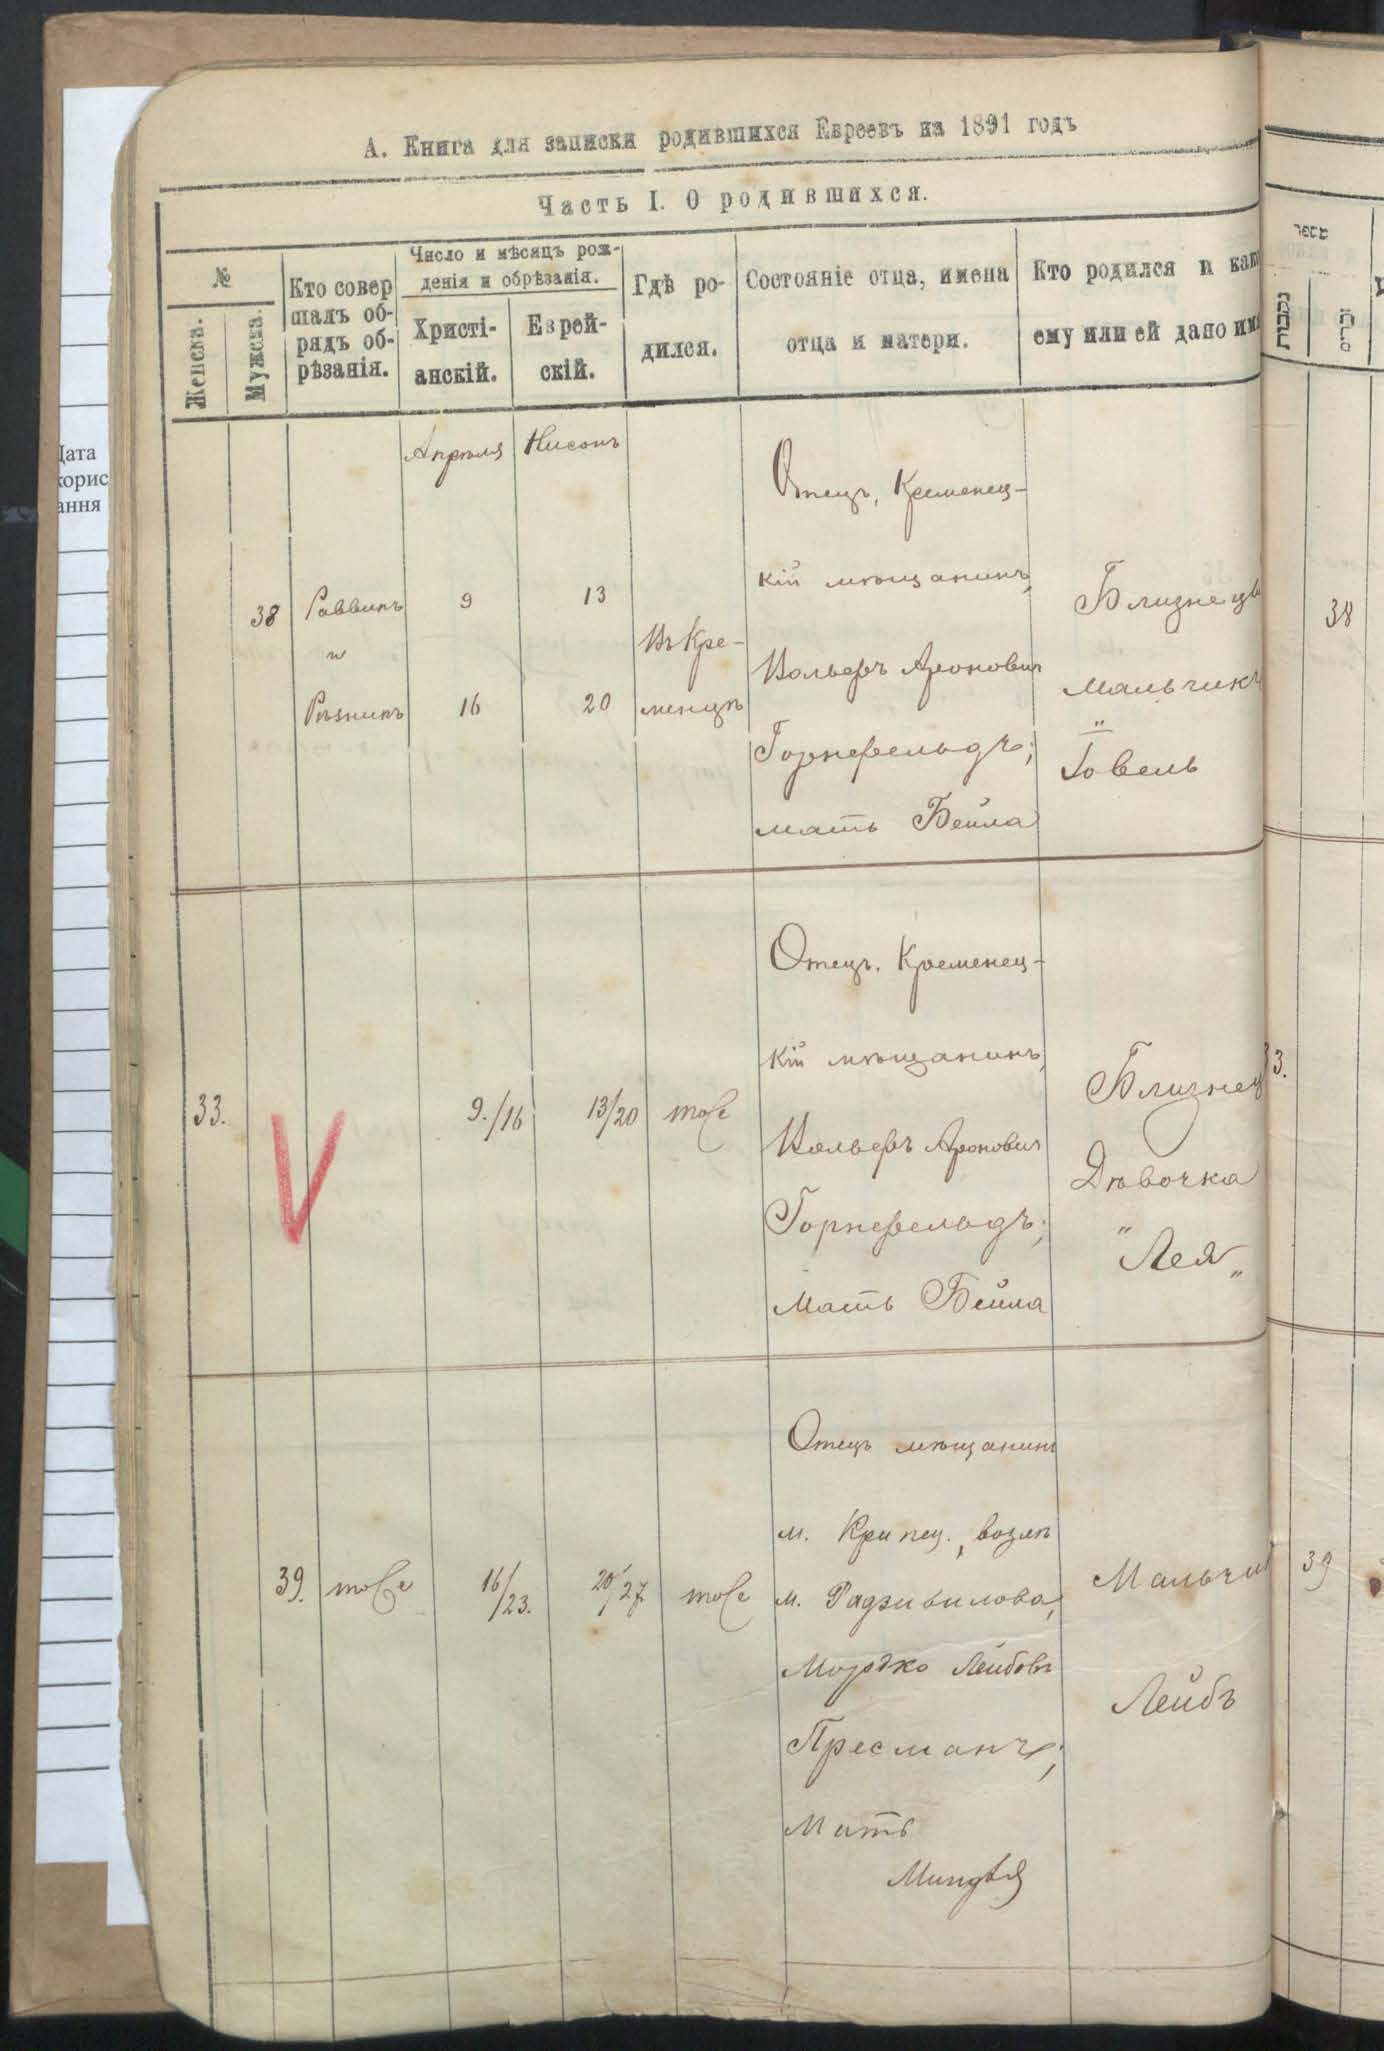 Дата
корис
ання
А. Книга для записки родившихся Евреевъ на 1891 годъ
Часть I. О родившихся.
№
Женска.
Мужска.
Кто совер
шалъ об-
рядъ об-
рѣзанія.
Число и мѣсяцъ рож-
денія и обрѣзанія.
Христі-
анскій.
Еврей-
скій.
Гдѣ ро-
дился.
Состояніе отца, имена
отца и матери.
Кто родился и как
ему или ей дано им
נקבות
זכרים
Апрѣля
Нисонъ
38
Раввинъ
и
Рѣзникъ
9
16
13
20
Въ Кре-
менцѣ
Отецъ, Кременец-
кій мѣщанинъ,
Вольфъ Аронович
Горнфельдъ;
мать Бейла
Близнецы
мальчикъ
"
Іовель
38
33.
9./16
13/20
тоже
Отецъ, Кременец-
кій мѣщанинъ,
Вольфъ Аронович
Горнфельдъ;
мать Бейла
Близнец
Дѣвочка
"
Лея"
3.
39.
тоже
16/
/23.
20/
/27
тоже
Отецъ мѣщанинъ
м.
м. Радзивилова,
Мордко Лейбовъ
Пресманъ;
Мать
Миндля
Мальчи
Лейбъ
39